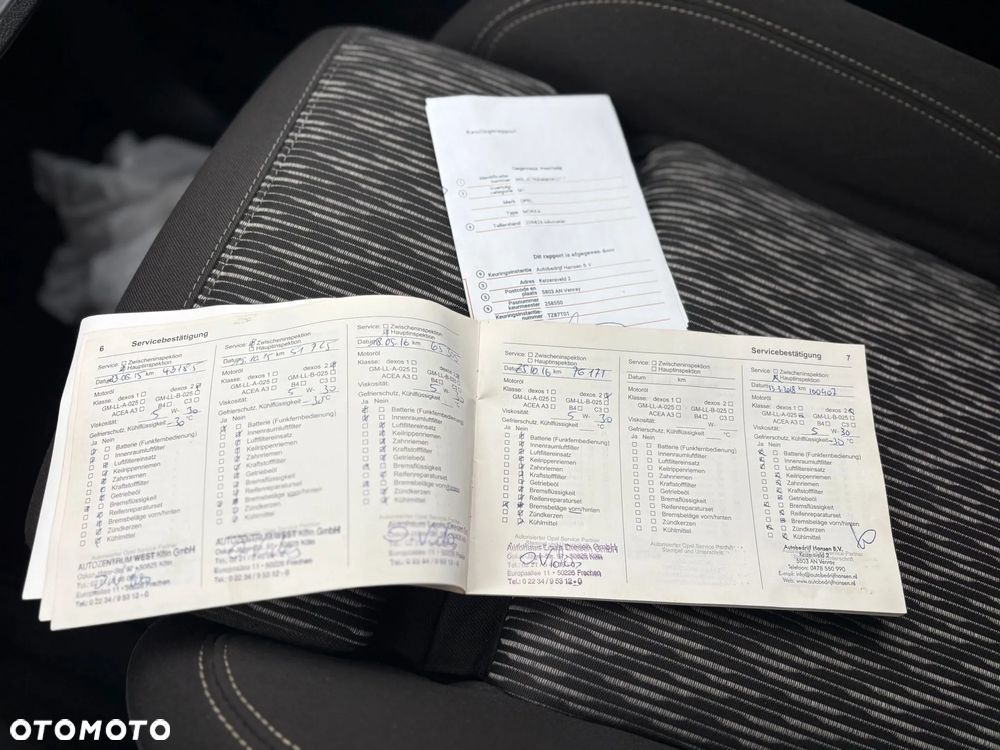 Keuringsrapport
Gegevens voertuig
Merk OPEL
Type MOKKA
Tellerstand
Dit rapport is afgegeven door
Keuringsinstantie Autobedrijf Hansen B.V.
Adres Keizersveld 2
Postcode en plaats 5803 AN Venray
Pasnummer keurmeester 258550
Keuringsinstantie-nummer TZ87T01
6
Servicebestätigung
Service: Zwischeninspektion
Hauptinspektion
Datum 03.06.15 km 43185
Motoröl
Klasse: dexos 1 dexos 2
GM-LL-A-025 GM-LL-B-025
ACEA A3 B4 C3
Viskosität: 5 W- 30
Gefrierschutz, Kühlflüssigkeit -30 °C
Ja Nein
Batterie (Funkfernbedienung)
Innenraumluftfilter
Luftfiltereinsatz
Keilrippenriemen
Zahnriemen
Kraftstofffilter
Getriebeöl
Bremsflüssigkeit
Reifenreparaturset
Bremsbeläge vorn/hinten
Zündkerzen
Kühlmittel
Autorisierter Opel Service Partner
AUTOZENTRUM WEST Köln GmbH
Europaallee 11 • 50226 Frechen
Tel.: 0 22 34 / 9 53 12 - 0
Service: Zwischeninspektion
Hauptinspektion
Datum 15.10.15 km
Motoröl
Klasse: dexos 1 dexos 2
GM-LL-A-025 GM-LL-B-025
ACEA A3 B4 C3
Viskosität: 5 W- 30
Gefrierschutz, Kühlflüssigkeit -30 °C
Ja Nein
Batterie (Funkfernbedienung)
Innenraumluftfilter
Luftfiltereinsatz
Keilrippenriemen
Zahnriemen
Kraftstofffilter
Getriebeöl
Bremsflüssigkeit
Reifenreparaturset
Bremsbeläge vorn/hinten
Zündkerzen
Kühlmittel
AUTOZENTRUM WEST Köln GmbH
Europaallee 11 • 50226 Frechen
Tel.: 0 22 34 / 9 53 12 - 0
Service: Zwischeninspektion
Hauptinspektion
Datum 18.05.16 km
Motoröl
Klasse: dexos 1 dexos 2
GM-LL-A-025 GM-LL-B-025
ACEA A3 B4 C3
Viskosität:
Gefrierschutz, Kühlflüssigkeit
Ja Nein
Batterie (Funkfernbedienung)
Innenraumluftfilter
Luftfiltereinsatz
Keilrippenriemen
Zahnriemen
Kraftstofffilter
Getriebeöl
Bremsflüssigkeit
Reifenreparaturset
Bremsbeläge
Zündkerzen
Kühlmittel
Europaallee 11 • 50226 Frechen
Tel.: 0 22 34 / 9 53 12 - 0
Servicebestätigung
7
Service: Zwischeninspektion
Hauptinspektion
Datum 25.10.16 km 76171
Motoröl
Klasse: dexos 1 dexos 2
GM-LL-A-025 GM-LL-B-025
ACEA A3 B4 C3
Viskosität: 5 W- 30
Gefrierschutz, Kühlflüssigkeit -30 °C
Ja Nein
Batterie (Funkfernbedienung)
Innenraumluftfilter
Luftfiltereinsatz
Keilrippenriemen
Zahnriemen
Kraftstofffilter
Getriebeöl
Bremsflüssigkeit
Reifenreparaturset
Bremsbeläge vorn/hinten
Zündkerzen
Kühlmittel
Europaallee 11 • 50226 Frechen
Tel.: 0 22 34 / 9 53 12 - 0
Service: Zwischeninspektion
Hauptinspektion
Datum km
Motoröl
Klasse: dexos 1 dexos 2
GM-LL-A-025 GM-LL-B-025
ACEA A3 B4 C3
Viskosität: W-
Gefrierschutz, Kühlflüssigkeit °C
Ja Nein
Batterie (Funkfernbedienung)
Innenraumluftfilter
Luftfiltereinsatz
Keilrippenriemen
Zahnriemen
Kraftstofffilter
Getriebeöl
Bremsflüssigkeit
Reifenreparaturset
Bremsbeläge vorn/hinten
Zündkerzen
Kühlmittel
Autorisierter Opel Service Partner
Stempel und Unterschrift
Service: Zwischeninspektion
Hauptinspektion
Datum km 100407
Motoröl
Klasse: dexos 1 dexos 2
GM-LL-A-025 GM-LL-B-025
ACEA A3 B4 C3
Viskosität: 5 W- 30
Gefrierschutz, Kühlflüssigkeit -30 °C
Ja Nein
Batterie (Funkfernbedienung)
Innenraumluftfilter
Luftfiltereinsatz
Keilrippenriemen
Zahnriemen
Kraftstofffilter
Getriebeöl
Bremsflüssigkeit
Reifenreparaturset
Bremsbeläge vorn/hinten
Zündkerzen
Kühlmittel
Autobedrijf Hansen B.V.
Keizersveld 2
5803 AN Venray
Telefoon: 0478 550 990
E-mail: info@autobedrijfhansen.nl
Web: www.autobedrijfhansen.nl
OTOMOTO